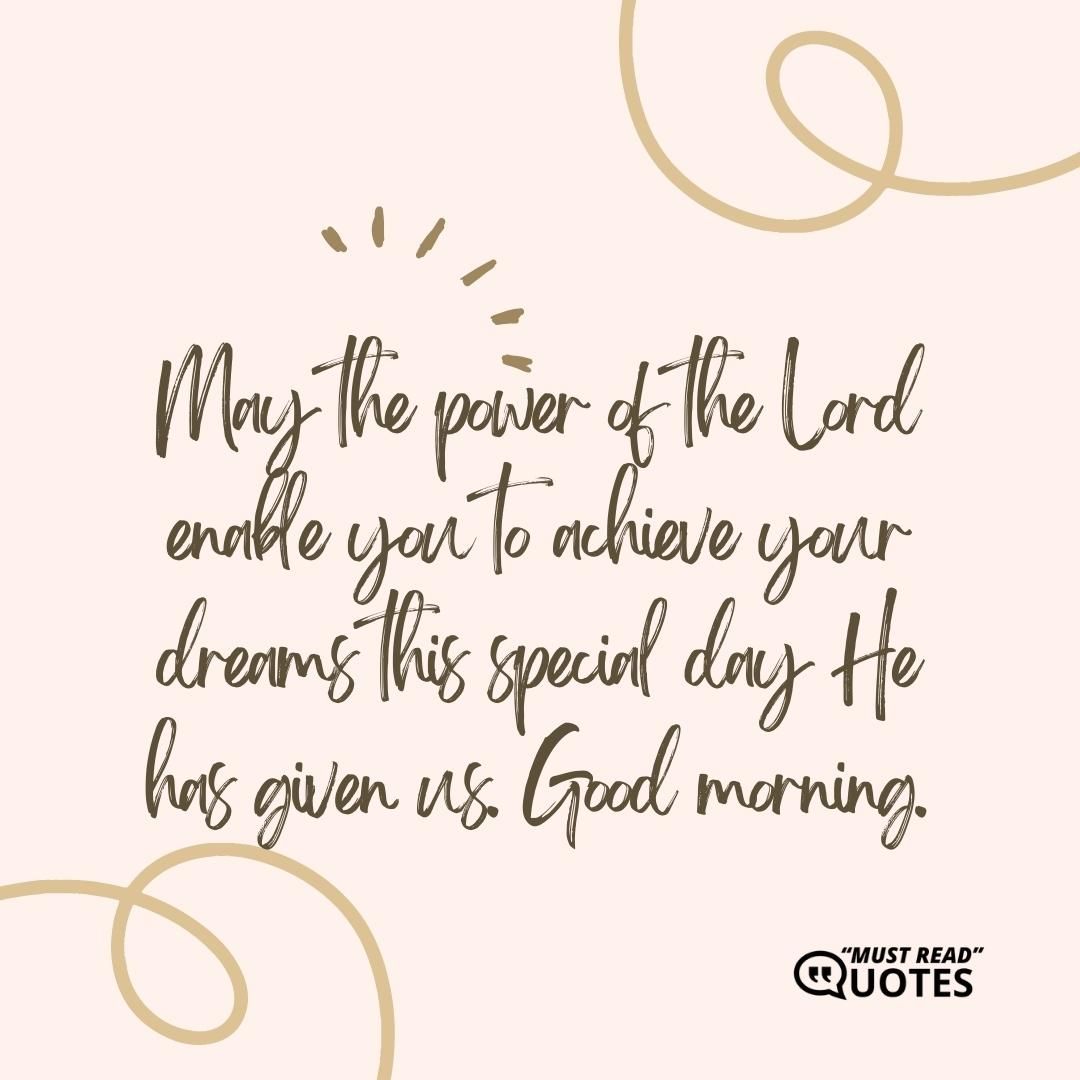 May the power of the Lord
enable you to achieve your
dreams this special day He
has given us. Good morning.
“MUST READ”
QUOTES